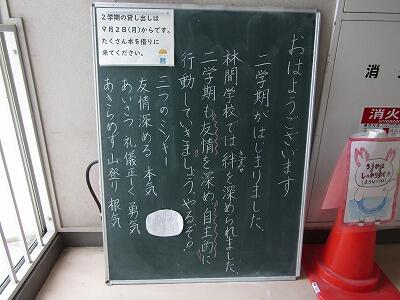 2学期の貸し出しは
9月2日(月)からです。
たくさん本を借りに
来てください。
おはようございます
二学期がはじまりました。
林間学校では絆を深められました。
きずな
二学期も友情を深め、自主的に
行動していきましょう。やるぞ。
三つのミッキー
友情深める 本気
あいさつ 礼儀正しく 勇気
あきらめず山登り 根気
消
消火
HYDRANT
ろうかは